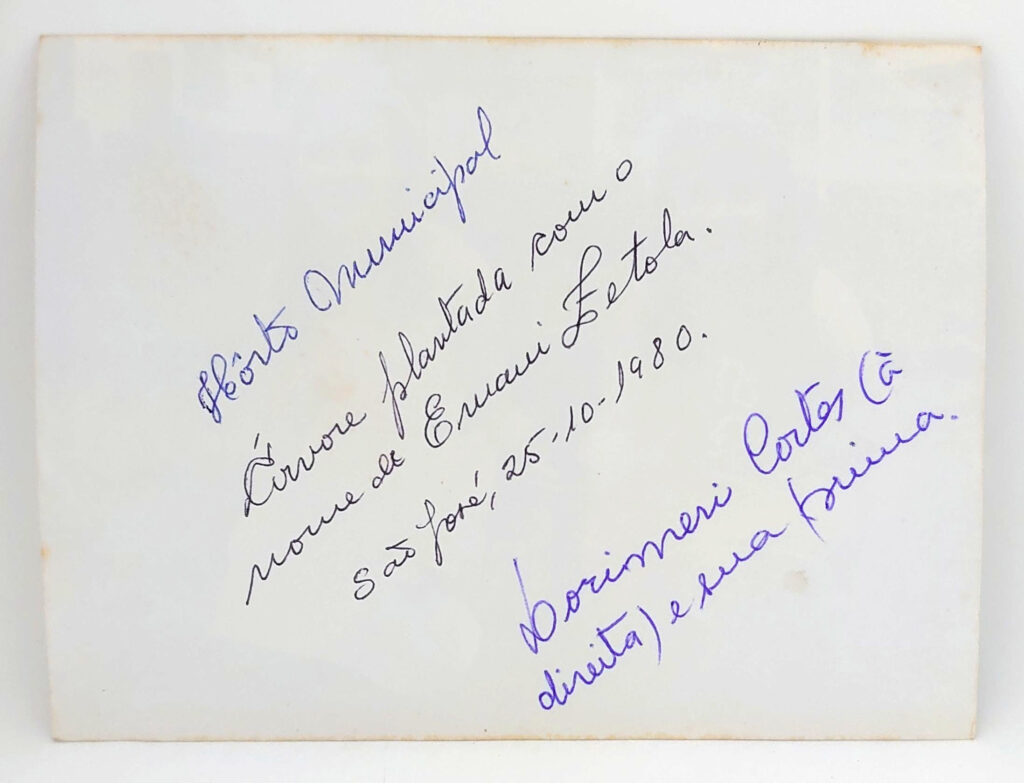 Hôrto Municipal
Árvore plantada com o
nome de Ernani Zetola.
São José, 25-10-1980.
Dorimeri Cortes (à
direita) e sua prima.